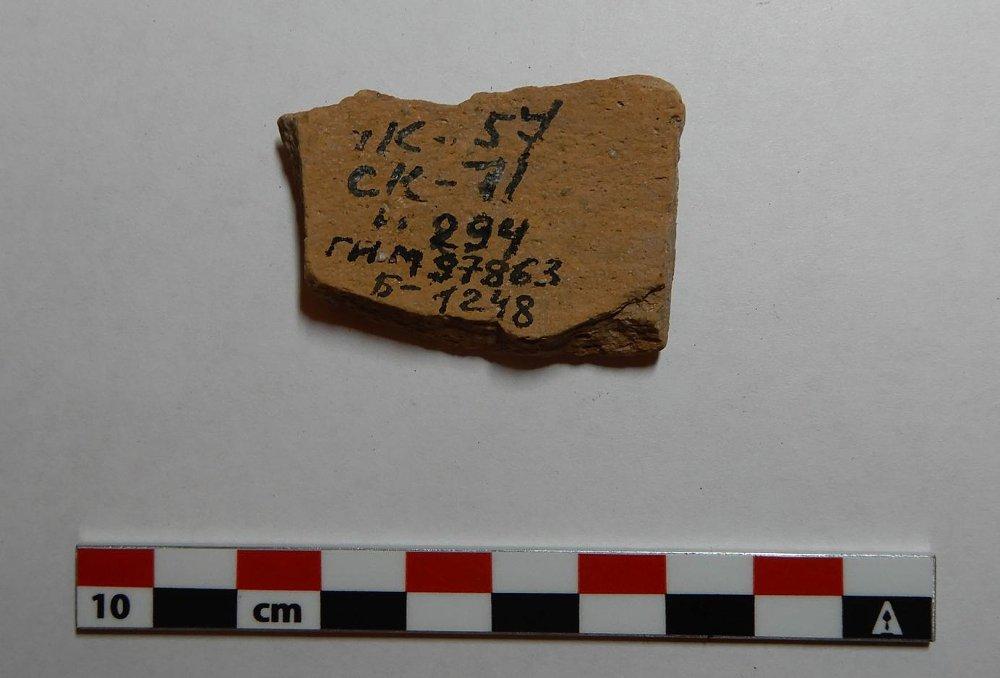 К-57
СК-71
294
ГНМ 97863
Б-1248
10 cm